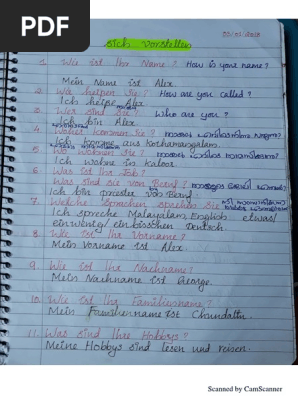 PDF
03/01/2023
Sich Vorstellen
1. Wie ist Ihr Name? How is your name?
Mein Name ist Alex.
2. Wie heipen Sie? How are you called?
Ich heipe Alex
3. Wer sind Sie? Who are you?
Ich bin Alex
4. Woher kommen Sie?
Ich komme aus Kothamangalam.
5. Wo wohnen Sie?
Ich wohne in Kaloor
6. Was ist Ihr Job?
Was sind Sie von Beruf?
Ich bin priester von Beruf.
7. Welche Sprachen sprechen Sie
Ich spreche Malayalam, English etwas/
ein wenig/ein bisschen Deutsch
8. Wie ist Ihr Vorname?
Mein Vorname ist Alex.
9. Wie ist Ihr Nachname?
Mein Nachname ist George.
10. Wie ist Ihr Familienname?
Mein Familienname ist Chundattu.
11. Was sind Ihre Hobbys?
Meine Hobbys sind lesen und reisen.
Scanned by CamScanner